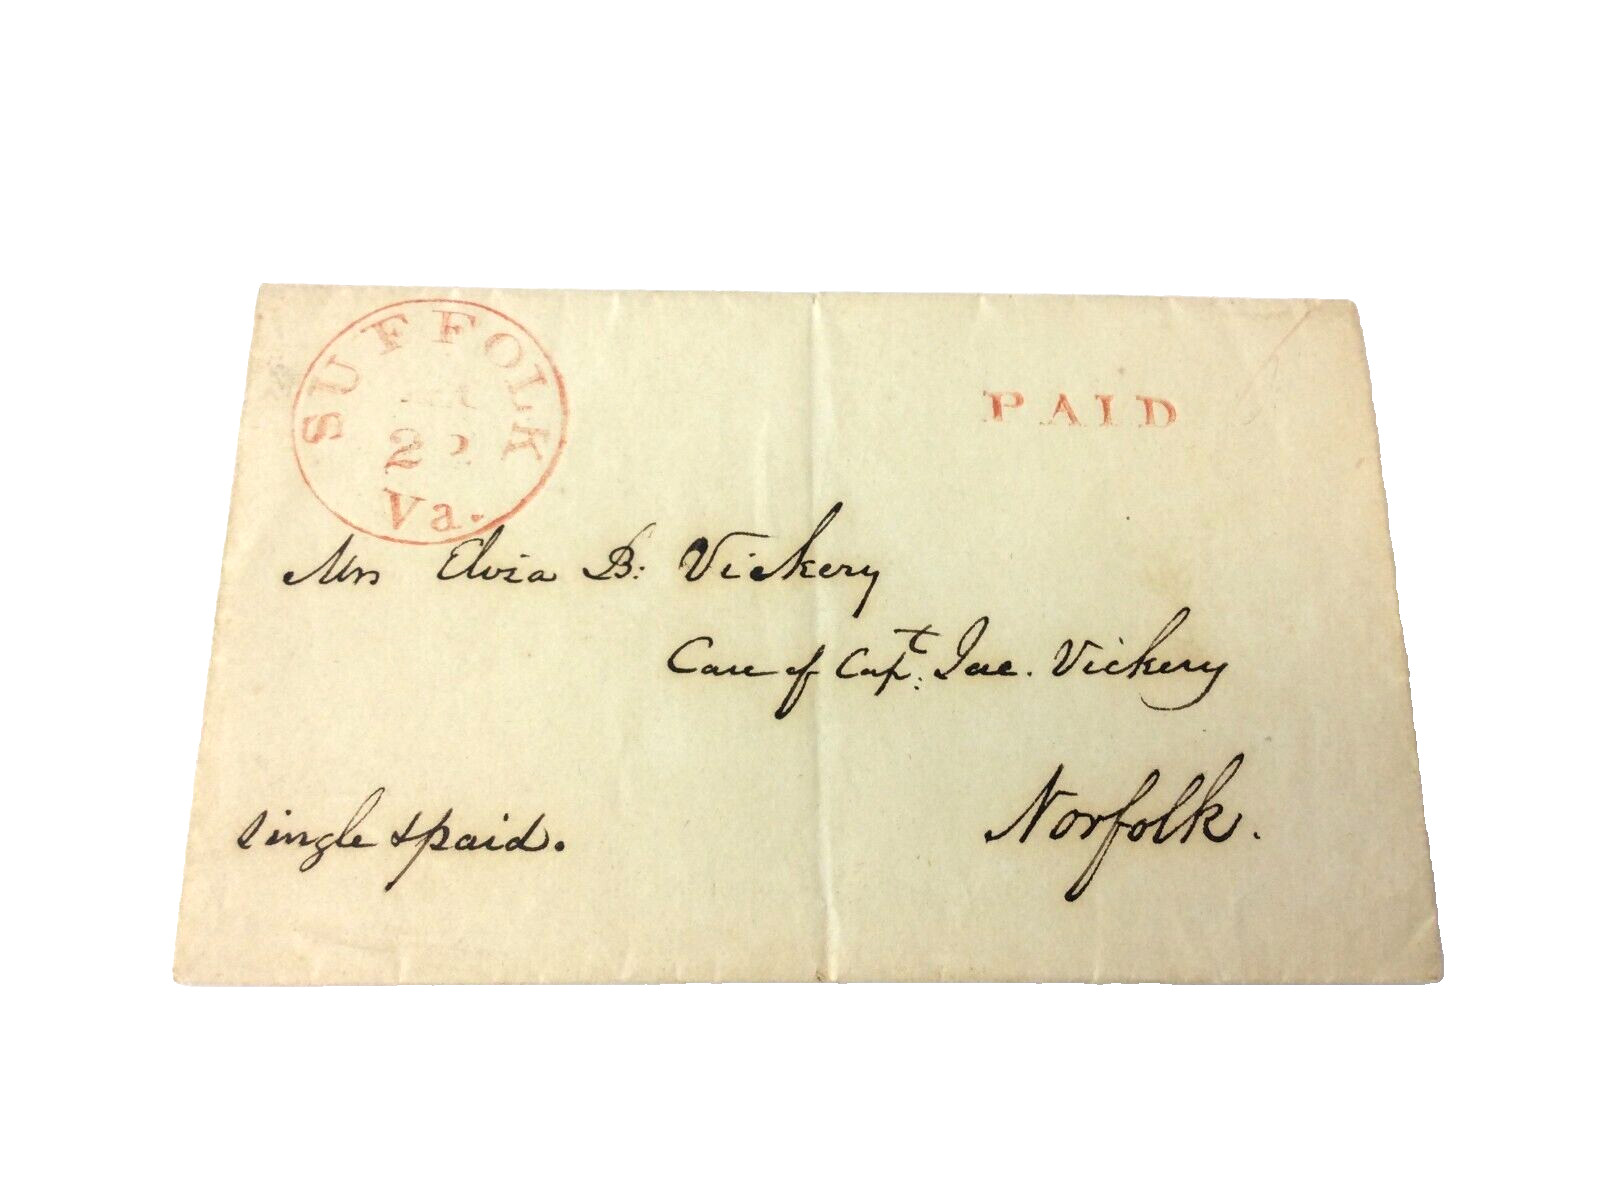 SUFFOLK
22
Va.
PAID
Mrs Elvia B: Vickery
Care of Capt: Jac. Vickery
Norfolk.
single & paid.